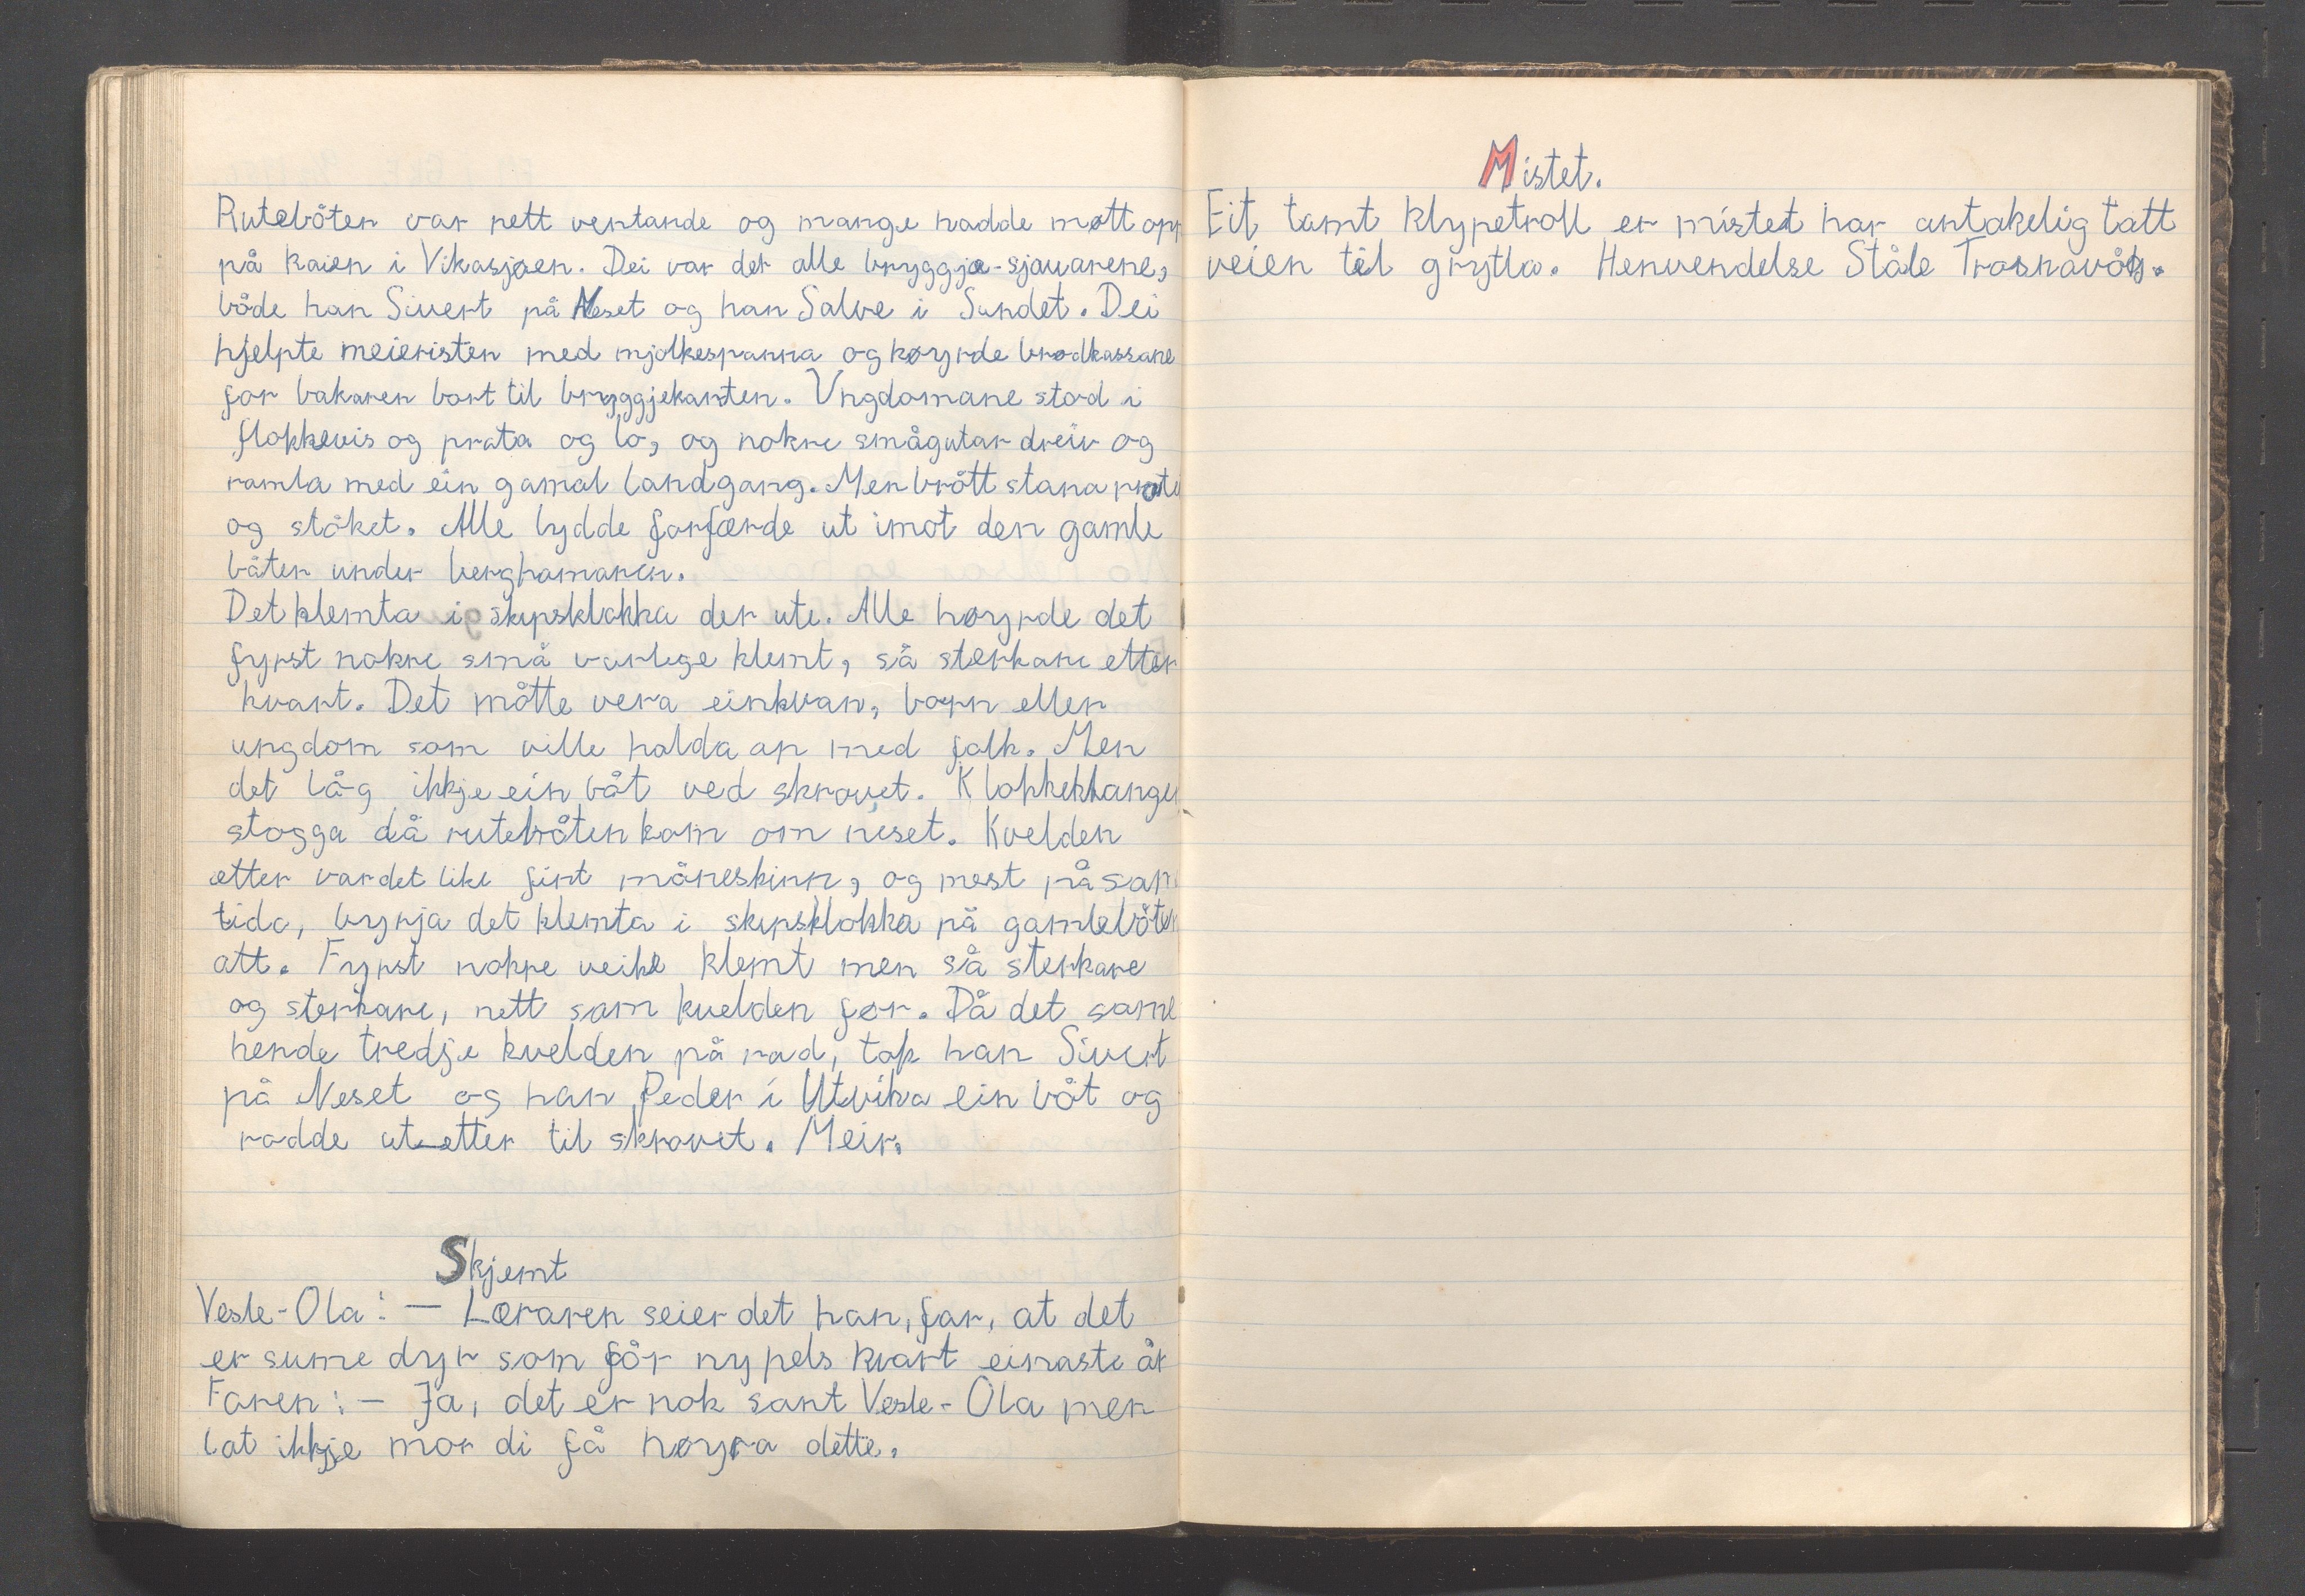 Rutebåten var nett ventande og mange hadde møtt opp
på kaien i Vikasjøen. Dei var der alle bryggje-sjauarene,
både han Sivert på Neset og han Salve i Sundet. Dei
hjelpte meieristen med mjølkespanna og køyrde brødkassane
for bakaren bort til bryggjekanten. Ungdomane stod i
flokkevis og prata og lo, og nokre smågutar dreiv og
ramla med ein gamal landgang. Men brått stana prate
og ståket. Alle lydde forfærde ut imot den gamle
båten under berghamaren.
Det klemta i skipsklokka der ute. Alle høyrde det
fyrst nokre små varlege klemt, så sterkare etter
kvart. Det måtte vera einkvan, born eller
ungdom som ville halda ap med folk. Men
det låg ikkje ein båt ved skrovet. Klokkeklange
stogga då rutebåten kom om neset. Kvelden
etter var det like fint måneskinn, og mest på sam
tida, byrja det klemta i skipsklokka på gamlebåten
att. Fyrst nokre veike klemt men så sterkare
og sterkare, nett som kvelden før. Då det same
hende tredje kvelden på rad, tok han Sivert
på Neset og han Peder i Utvika ein båt og
rodde ut-etter til skrovet. Meir.
Skjemt
Vesle-Ola: — Læraren seier det han, far, at det
er sume dyr som får ny pels kvart einaste år
Faren: — Ja, det er nok sant Vesle-Ola men
lat ikkje mor di få høyra dette.
Mistet.
Eit tamt klypetroll er mistet har antakelig tatt
veien til grytla. Henvendelse Ståle Trosnavåg.